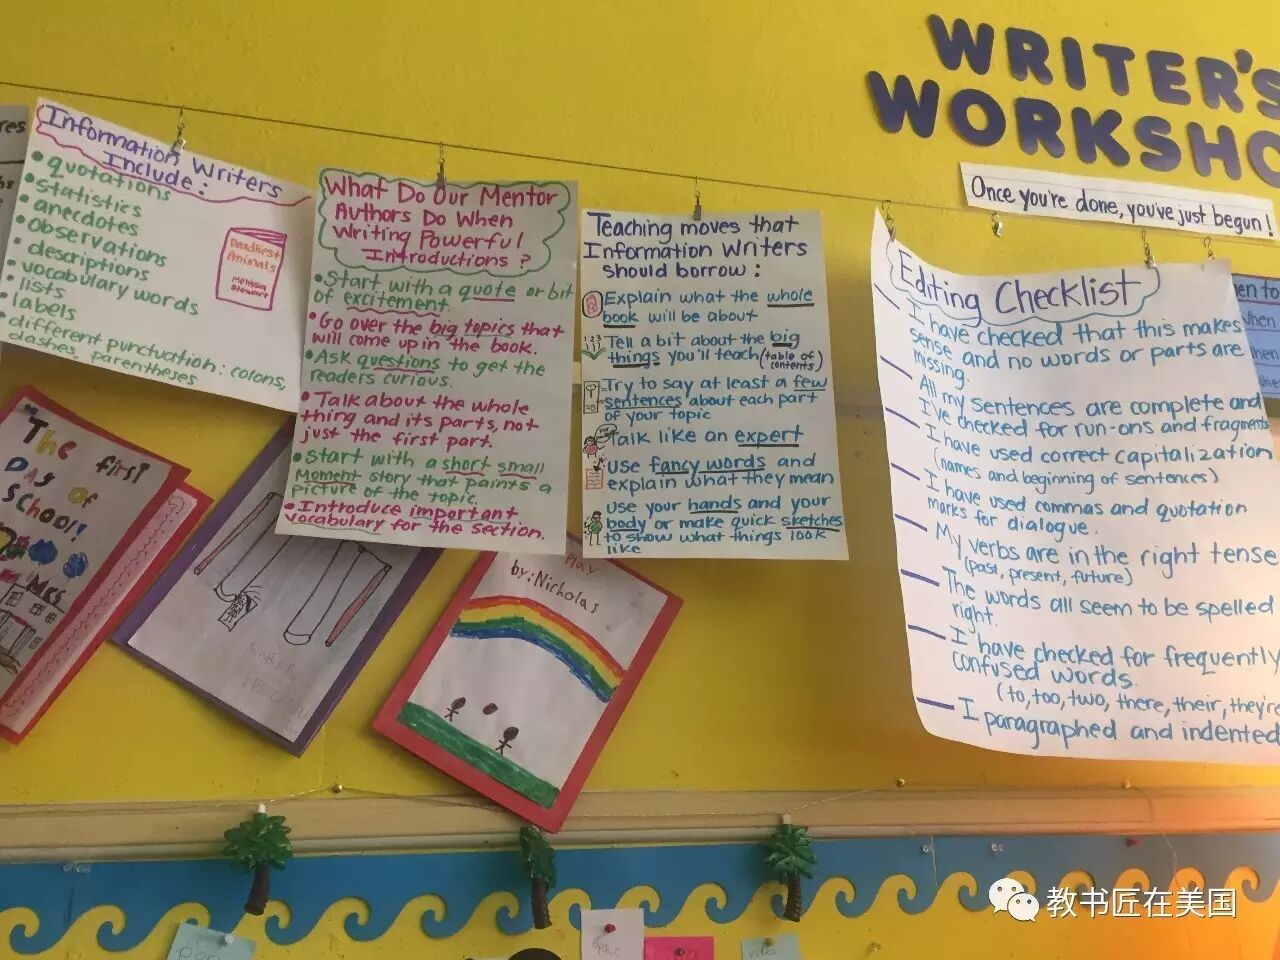 WRITER'S
WORKSHO
Once you're done, you've just begun!
Information Writers
Include:
• quotations
• statistics
• anecdotes
• observations
• descriptions
• vocabulary words
• lists
• labels
• different punctuation: colons,
dashes, parentheses
Deadliest
Animals
Melissa
Stewart
What Do Our Mentor
Authors Do When
Writing Powerful
Introductions?
• Start with a quote or bit
of excitement.
• Go over the big topics that
will come up in the book.
• Ask questions to get the
readers curious.
• Talk about the whole
thing and its parts, not
just the first part.
• Start with a short small
moment story that paints a
picture of the topic.
• Introduce important
vocabulary for the section.
Teaching moves that
Information Writers
should borrow:
Explain what the whole
book will be about
Tell a bit about the big
things you'll teach (table of
contents)
Try to say at least a few
sentences about each part
of your topic
Talk like an expert
use fancy words and
explain what they mean
use your hands and your
body or make quick sketches
to show what things look
like
Editing Checklist
I have checked that this makes
sense and no words or parts are
missing.
All my sentences are complete and
I've checked for run-ons and fragments
I have used correct capitalization
(names and beginning of sentences)
I have used commas and quotation
marks for dialogue.
My verbs are in the right tense
(past, present, future)
The words all seem to be spelled
right.
I have checked for frequently
confused words.
(to, too, two, there, their, they're
I paragraphed and indented
The first
Day of
School!
Mrs.
by: Nicholas
教书匠在美国